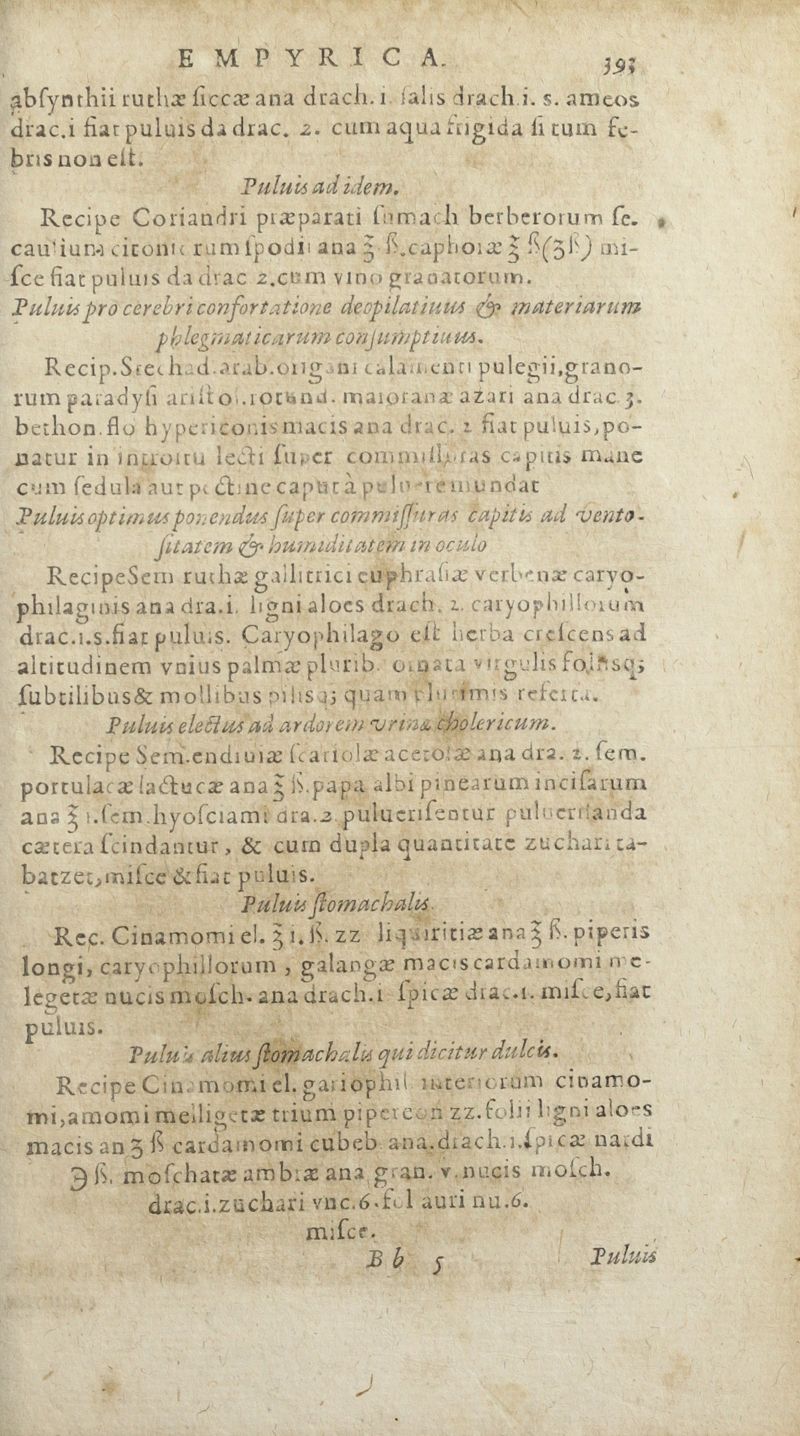 EMPYRICA. 393
abſynthii ruthæ ſiccæ ana drach.i. ſalis drach.i. s. ameos
drac.i fiat puluis da drac. 2. cum aqua frigida ſi tum fe-
bris non eſt.
Puluis ad idem.
Recipe Coriandri præparati ſumach berberorum ſe.
caulium citoni rum ſpodii ana ℥ ß.caphoræ ℥ ß(ʒß) mi-
ſce fiat puluis da drac 2.cum vino granatorum.
Puluis pro cerebri confortatione deopilatiuus & materiarum
phlegmaticarum conſumptiuus.
Recip.Stechad.arab.origani calamenti pulegii,grano-
rum paradyſi ariſtol.rotund. maioranæ azari ana drac.3.
bethon.flo hypericonis macis ana drac. 2 fiat puluis,po-
natur in introitu lecti ſuper commiſſuras capitis mane
cum ſedula aut pectine caput à remundat
Puluis optimus ponendus ſuper commiſſuras capitis ad vento-
ſitatem & humiditatem in oculo
RecipeSem ruthæ gallitrici euphraſiæ verbenæ caryo-
philaginis ana dra.i. ligni aloes drach. 2. caryophillorum
drac.1.s.fiat puluis. Caryophilago eſt herba creſcens ad
altitudinem vnius palmæ plurib. ornata virgulis foliisq;
ſubtilibus& mollibus pilisq; quam plurimis referta.
Puluis electus ad ardorem vrinæ cholericum.
Recipe Sem.endiuiæ ſcariolæ acetoſæ ana dra. 2. ſem.
portulacæ lactucæ ana ℥ ß.papa albi pinearum inciſarum
ana ℥ i.ſem.hyoſciami dra.2 puluerifentur puluerizanda
cætera ſcindantur, & cum dupla quantitate zuchari ta-
batzet,miſce & fiat puluis.
Puluis ſtomachalis.
Rec. Cinamomi el. ℥ 1.ß. zz liquiritiæ ana ℥ ß. piperis
longi, caryophillorum , galangæ macis cardamomi me-
legetæ nucis moſch. ana drach.i ſpicæ drac.1. miſce,fiat
puluis.
Puluis alius ſtomachalis qui dicitur dulcis.
Recipe Cinamomi el. gariophil interiorum cinamo-
mi,amomi melligetæ trium pipereon zz.folii ligni aloes
macis an ʒ ß cardamomi cubeb. ana.drach.1.ſpicæ nardi
℈ ß. moſchatæ ambræ ana gran. v.nucis moſch.
drac.i.zuchari vnc.6.fol auri nu.6.
miſce.
Bb 5 Puluis